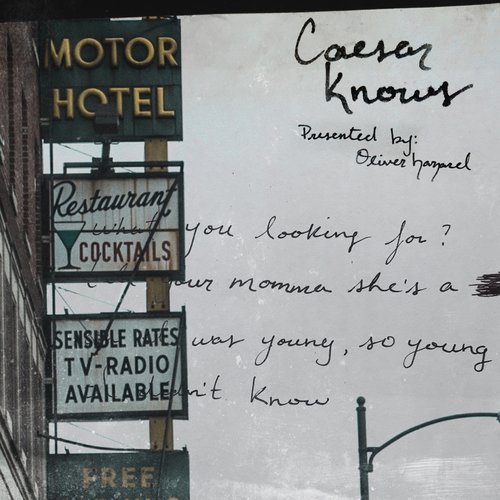 MOTOR
HOTEL
Restaurant
COCKTAILS
SENSIBLE RATES
TV-RADIO
AVAILABLE
FREE
Caesar
Knows
Presented by:
Oliver
What you looking for?
your momma she's a
was young, so young
didn't know